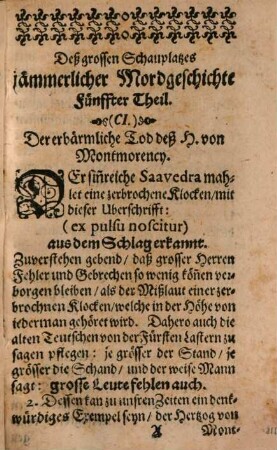 Deß grossen Schauplatzes
jämmerlicher Mordgeschichte
Fünffter Theil.
(CI.)
Der erbärmliche Tod deß H. von
Montmorency.
DEr sinreiche Saavedra mah-
let eine zerbrochene Klocken/mit
dieser Uberschrifft:
(ex pulsu noscitur)
aus dem Schlag erkannt.
Zuverstehen gebend/ daß grosser Herren
Fehler und Gebrechen so wenig köñen ver-
borgen bleiben/ als der Mißlaut einer zer-
brochnen Klocken/welche in der Höhe von
iederman gehöret wird. Dahero auch die
alten Teutschen von der Fürsten Lastern zu
sagen pflegen: je grösser der Stand/ je
grösser die Schand/ und der weise Mann
sagt: grosse Leute fehlen auch.
2. Dessen kan zu unsren Zeiten ein denk-
würdiges Exempel seyn/ der Hertzog von
A Mont-